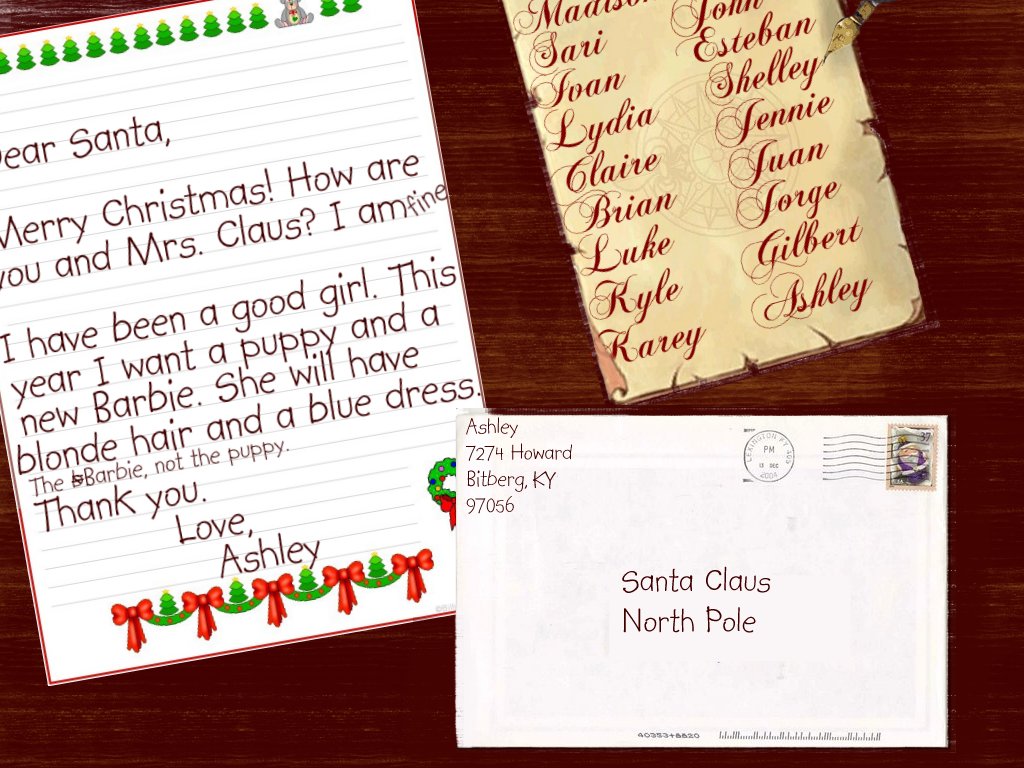 Dear Santa,
Merry Christmas! How are
you and Mrs. Claus? I am fine
I have been a good girl. This
year I want a puppy and a
new Barbie. She will have
blonde hair and a blue dress.
The Barbie, not the puppy.
Thank you.
Love,
Ashley
Madison
Sari
Ivan
Lydia
Claire
Brian
Luke
Kyle
Karey
John
Esteban
Shelley
Jennie
Juan
Jorge
Gilbert
Ashley
Ashley
7274 Howard
Bitberg, KY
97056
LEXINGTON KY 405
PM
13 DEC
2004
37
Santa Claus
North Pole
40353+8820